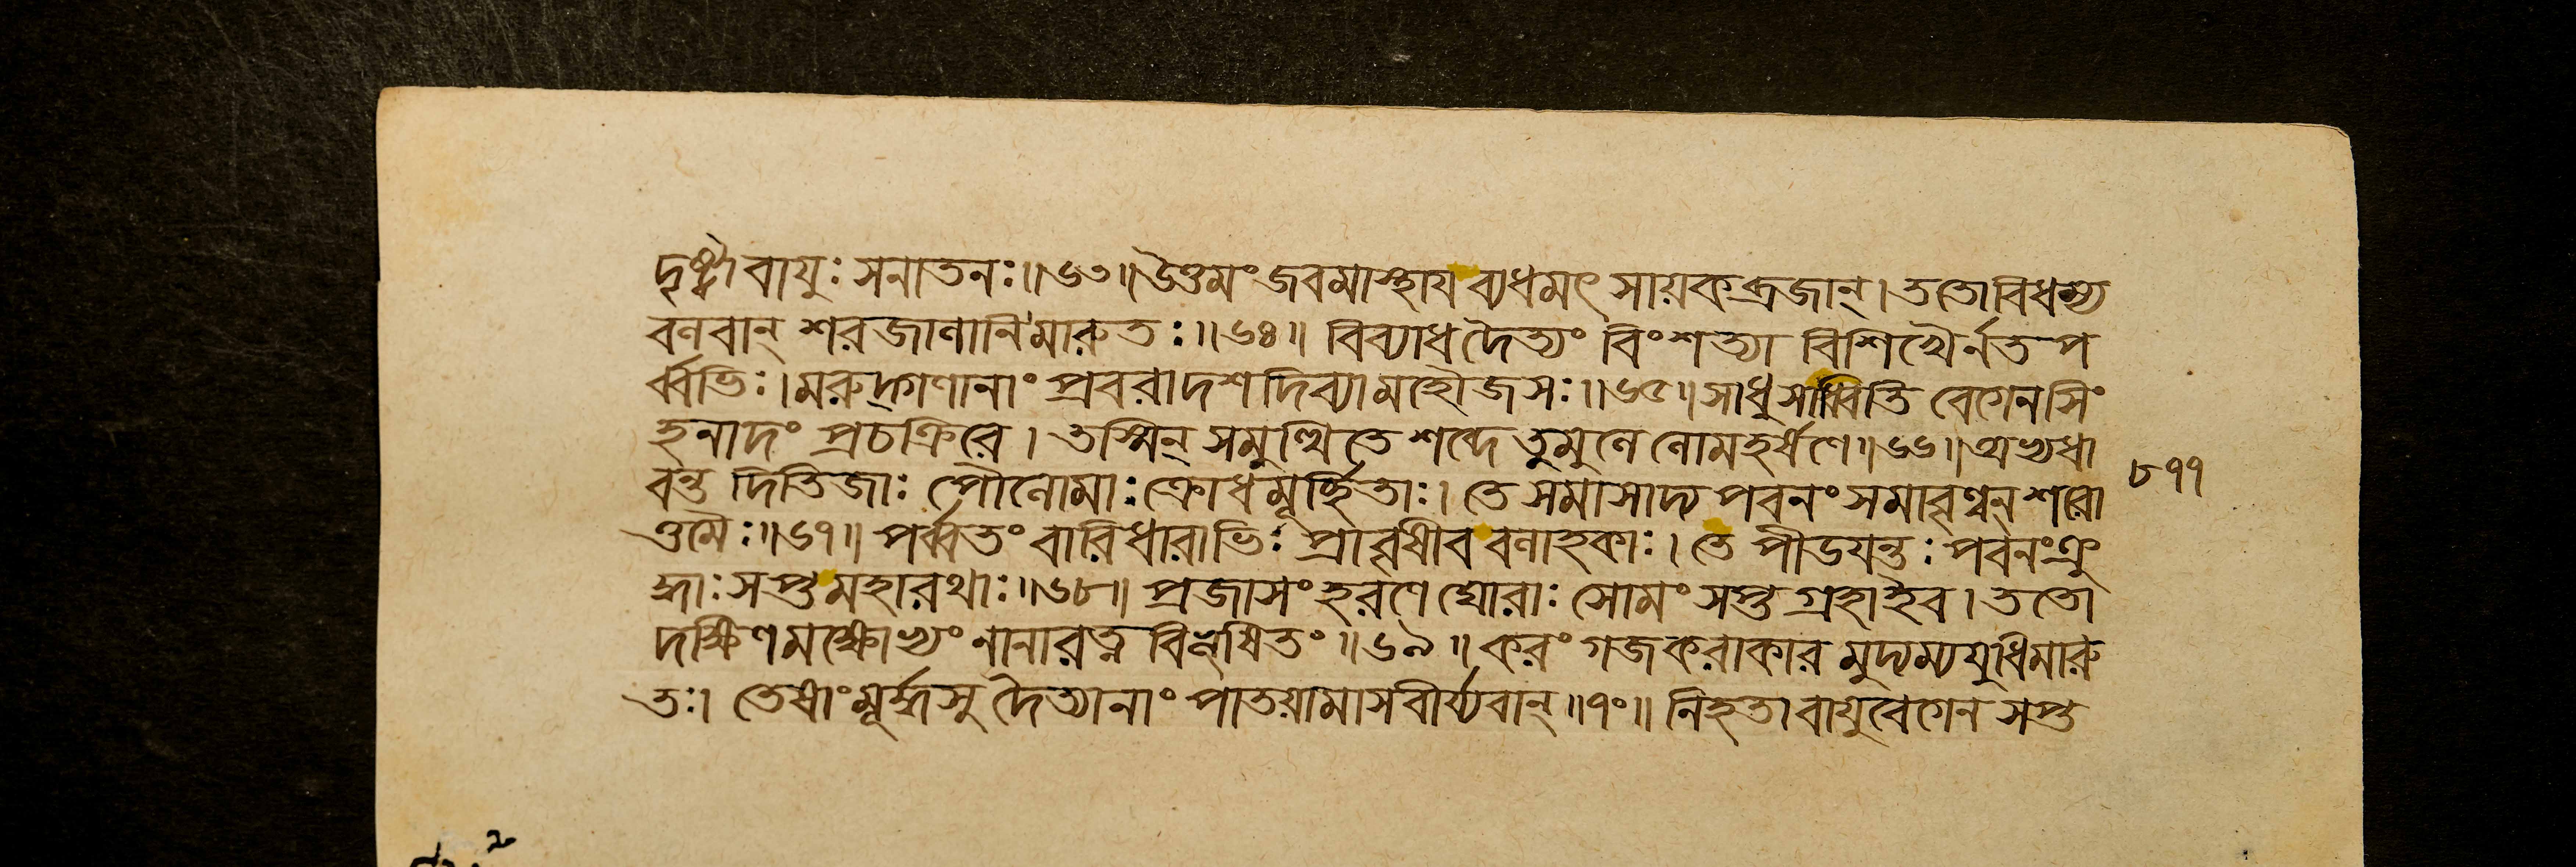 দৃষ্ট্বা বায়ুঃ সনাতনঃ॥৬৩॥উত্তমং জবমাস্থায ব্যধমৎ সায়কব্রজান্। ততোবিধম্য
বলবান্ শরজালানি মারুতঃ॥৬৪॥ বিব্যাধ দৈত্যং বিংশত্যা বিশিখৈর্নত প
র্ব্বভিঃ। মরুদ্গণানাং প্রবরাদশ দিব্যামহৌজসঃ॥৬৫॥ সাধুসাধ্বিতি বেগেন সিং
হনাদং প্রচক্রিরে। তস্মিন্ সমুত্থিতে শব্দে তুমুলে লোমহর্ষণে॥৬৬॥ অভ্যধা
বন্ত দিতিজাঃ পৌলোমাঃ ক্রোধমূর্চ্ছিতাঃ। তে সমাসাদ্য পবনং সমাবৃণ্বন্ শরো
ত্তমৈঃ॥৬৭॥ পর্ব্বতং বারিধারাভিঃ প্রাবৃষীব বলাহকাঃ। তে পীডযন্তঃ পবনং ক্রু
দ্ধাঃ সপ্তমহারথাঃ॥৬৮॥ প্রজাসংহরণে ঘোরাঃ সোমং সপ্ত গ্রহাইব। ততো
দক্ষিণমক্ষোভ্যং নানারত্ন বিভূষিতং॥৬৯॥ করং গজকরাকার মুদ্যম্যযুধিমারু
তঃ। তেষাং মূর্দ্ধসু দৈত্যানাং পাতয়ামাসবীর্য্যবান্॥৭০॥ নিহতা বায়ুবেগেন সপ্ত
৮৭৭